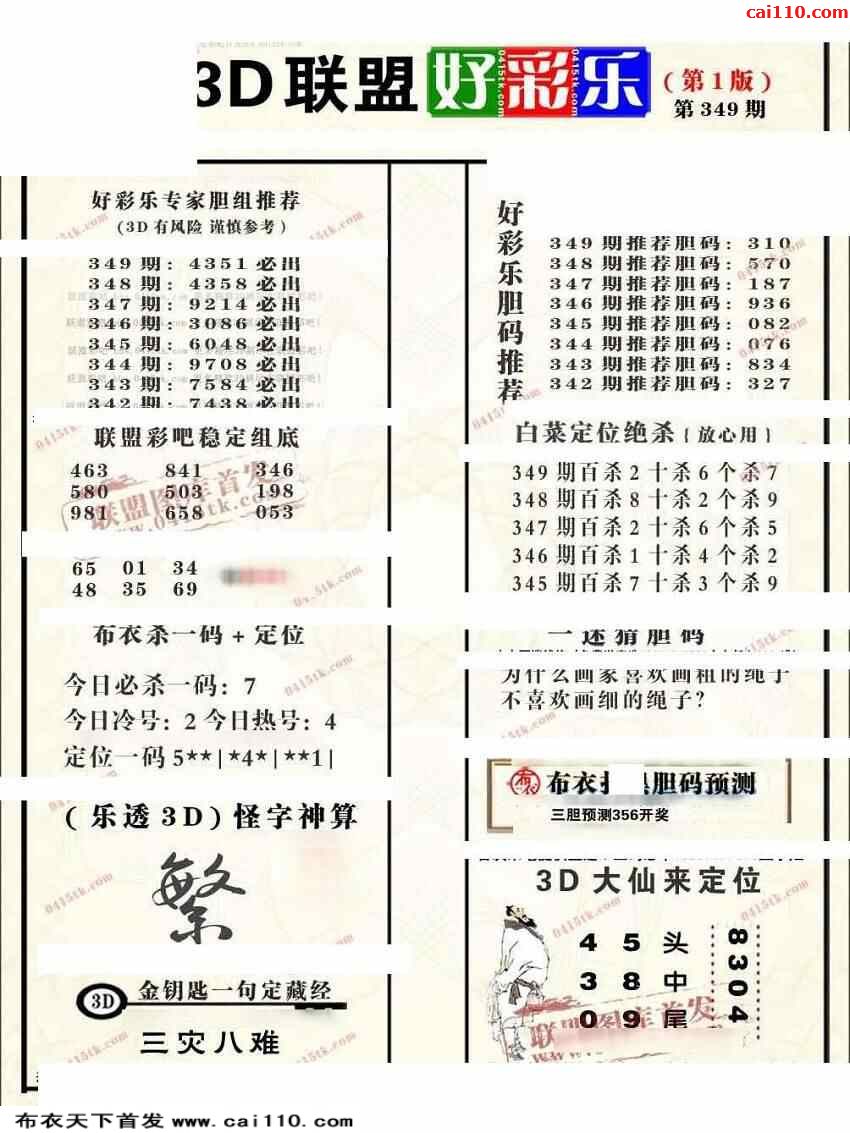 cai110.com
3D联盟好彩乐
(第1版)
第349期
好彩乐专家胆组推荐
(3D有风险 谨慎参考)
349期: 4351必出
348期: 4358必出
347期: 9214必出
346期: 3086必出
345期: 6048必出
344期: 9708必出
343期: 7584必出
342期: 7438必出
联盟彩吧稳定组底
463 841 346
580 503 198
981 658 053
65 01 34
48 35 69
布衣杀一码+定位
今日必杀一码: 7
今日冷号: 2 今日热号: 4
定位一码 5**|*4*|**1|
(乐透3D)怪字神算
繁
3D 金钥匙一句定藏经
三灾八难
好彩乐胆码推荐
349期推荐胆码: 310
348期推荐胆码: 570
347期推荐胆码: 187
346期推荐胆码: 936
345期推荐胆码: 082
344期推荐胆码: 076
343期推荐胆码: 834
342期推荐胆码: 327
白菜定位绝杀{放心用}
349期百杀2十杀6个杀7
348期百杀8十杀2个杀9
347期百杀2十杀6个杀5
346期百杀1十杀4个杀2
345期百杀7十杀3个杀9
一迷猜胆码
为什么画家喜欢画粗的绳子
不喜欢画细的绳子?
布衣 胆码预测
三胆预测356开奖
3D大仙来定位
4 5 头
3 8 中
0 9 尾
8304
联盟图库首发
www.0415tk.com
0415tk.com
布衣天下首发 www.cai110.com